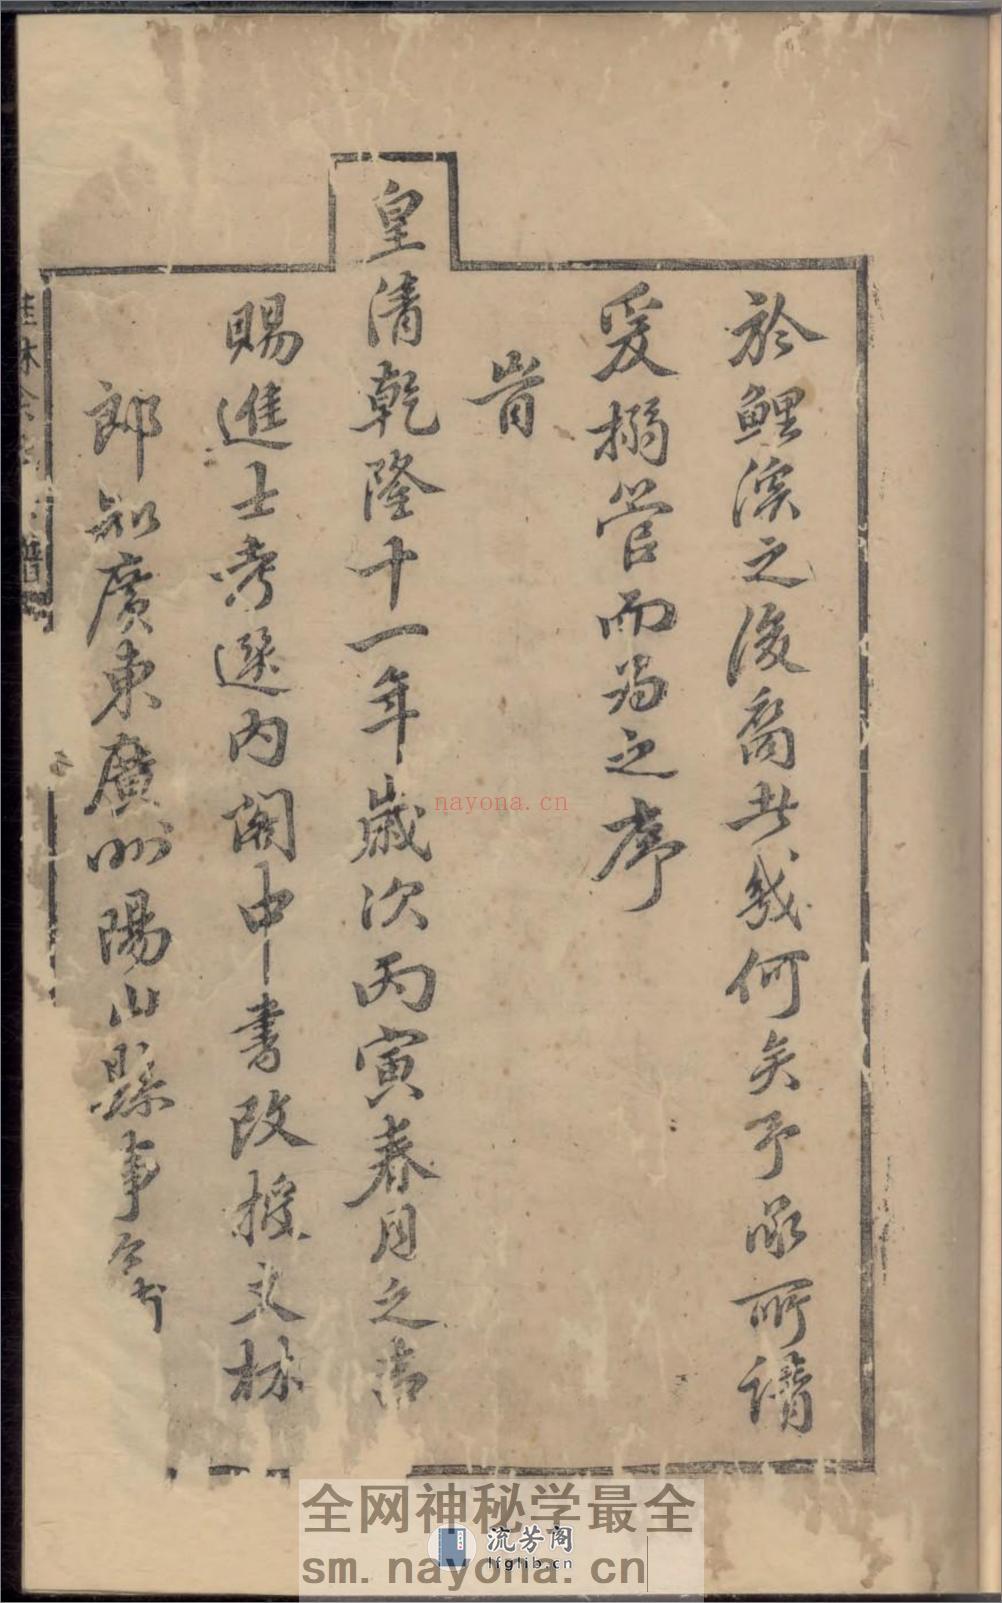 於鯉溪之後裔此幾何矣予承所譜
爰搦管而為之序
峕
皇清乾隆十一年歲次丙寅春月之吉
賜進士考選內閣中書改授文林
郎知廣東廣州陽山縣事
譜
nayona.cn
全网神秘学最全
流芳阁
lfglib.cn
sm.nayona.cn